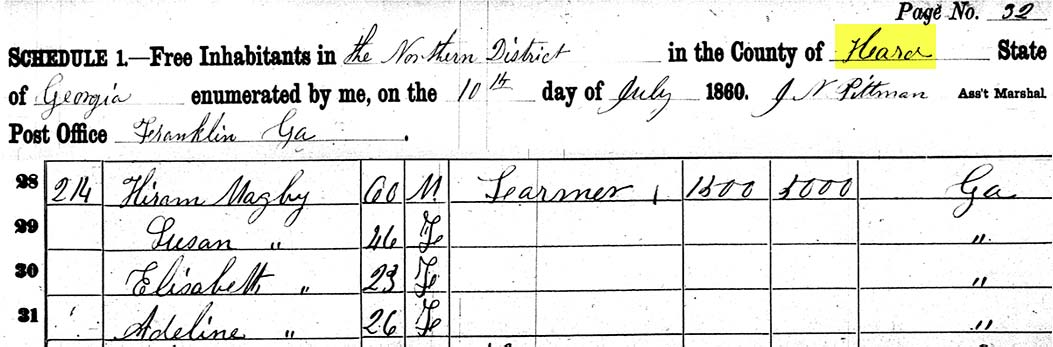 Page No. 32
SCHEDULE 1.—Free Inhabitants in the Northern District in the County of Heard State
of Georgia enumerated by me, on the 10th day of July 1860. J N Pittman Ass't Marshal.
Post Office Franklin Ga .
28 214 Hiram Magby 60 M Fearmer 1 1500 5000 Ga
29 Susan " 46 F "
30 Elisabeth " 23 F "
31 Adeline " 26 F "